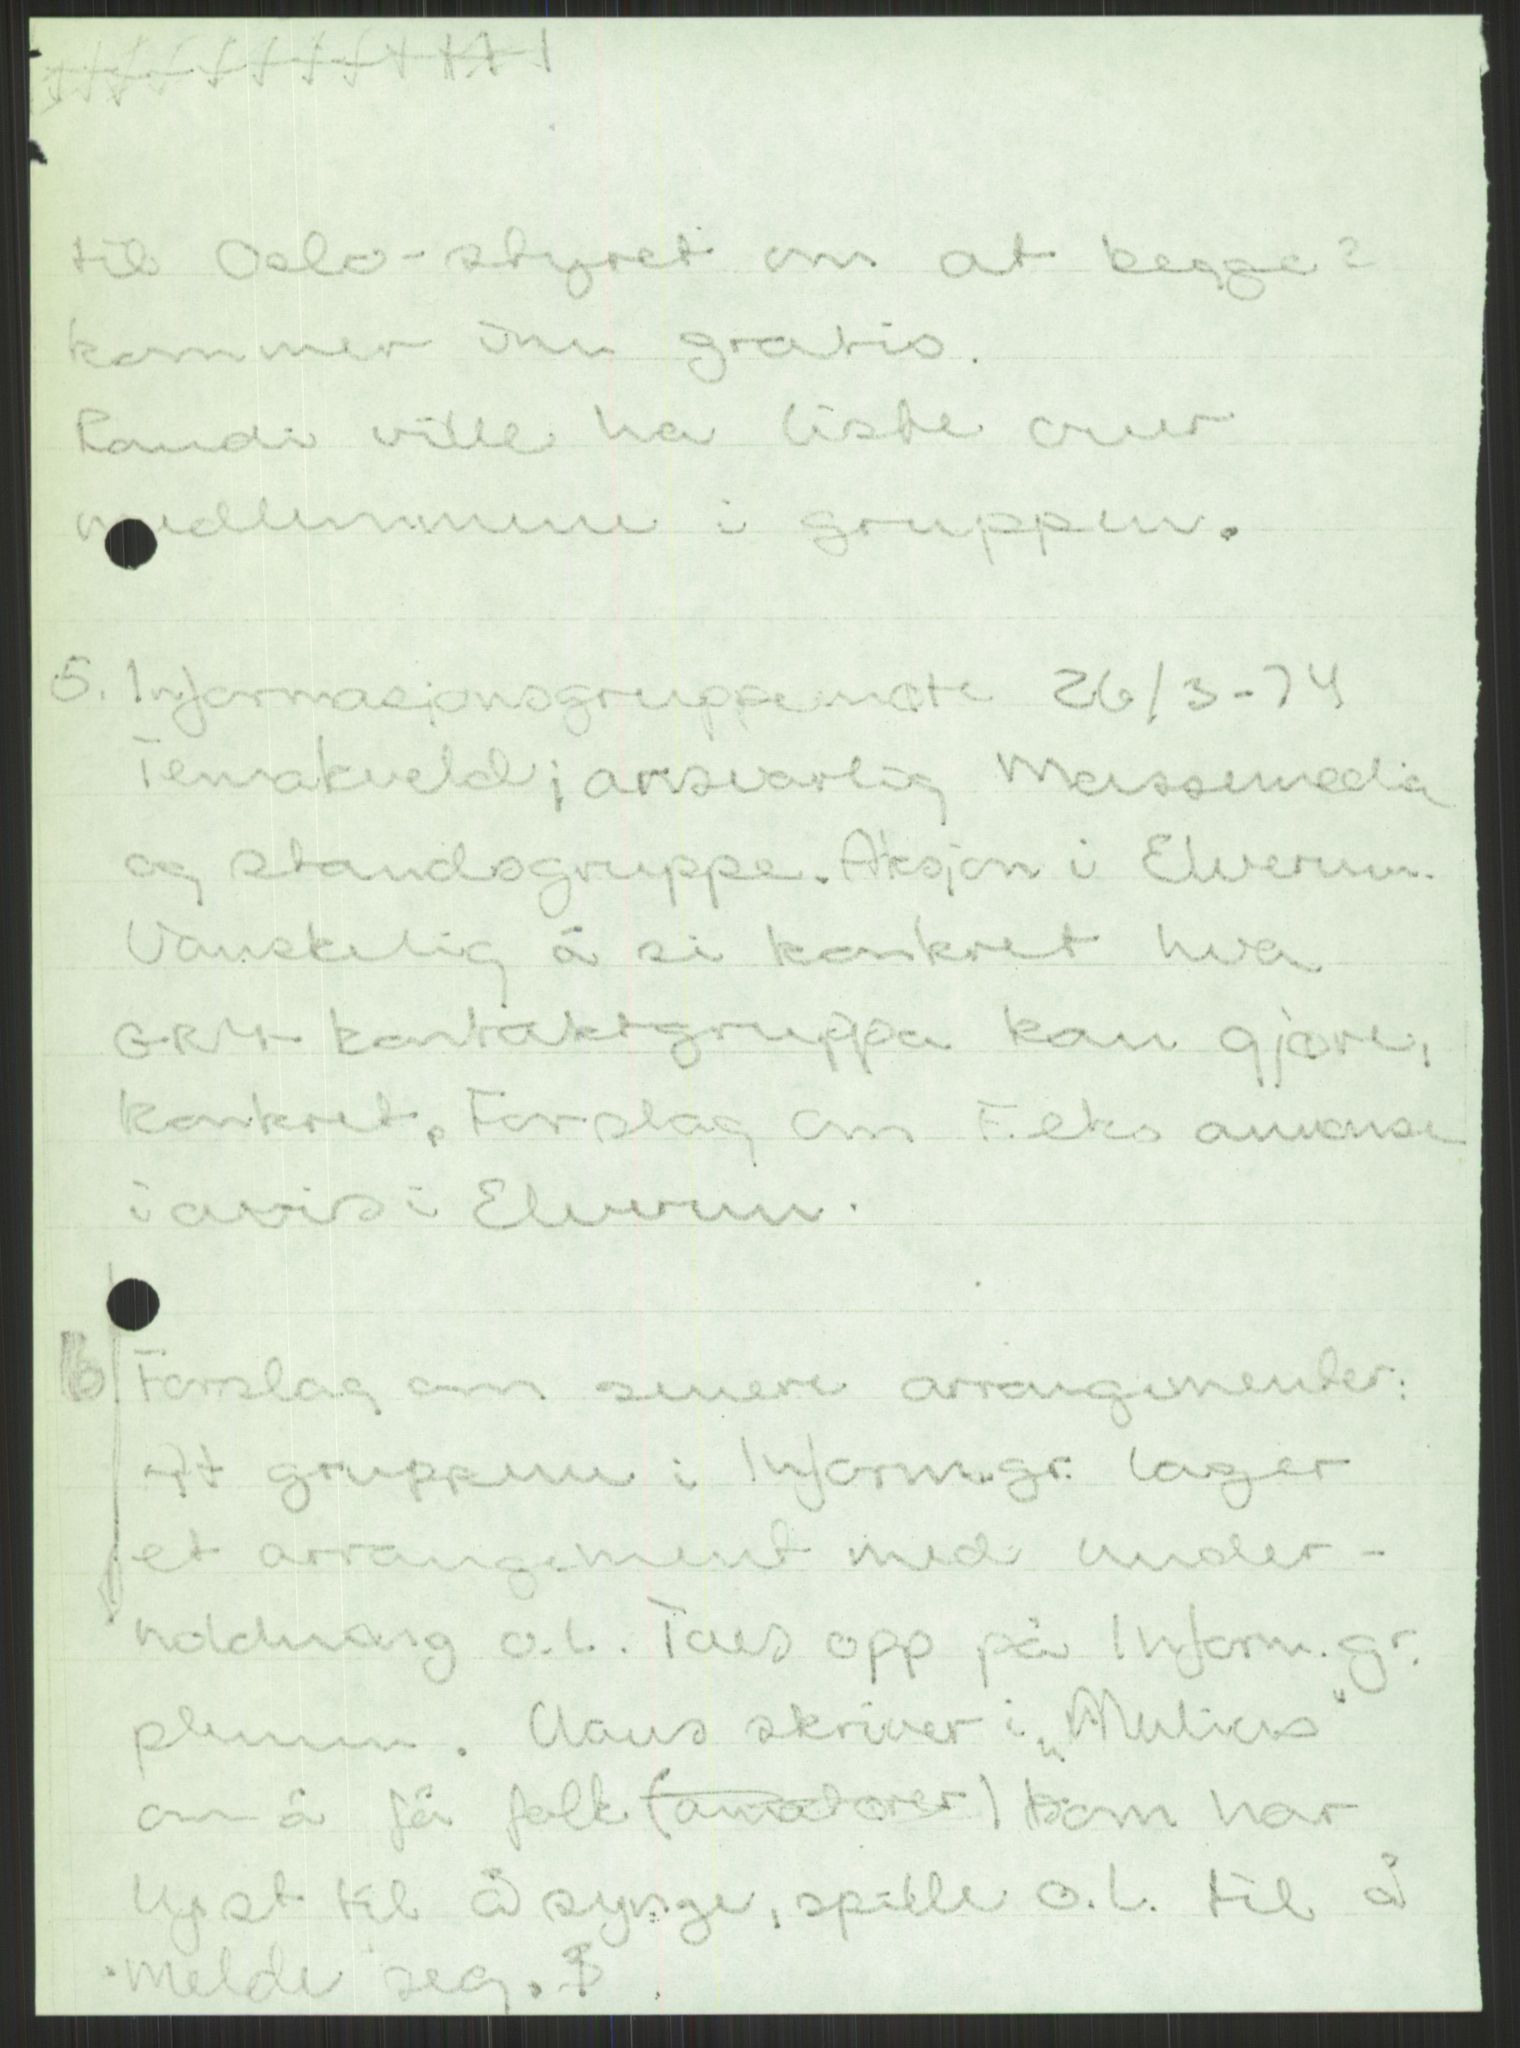 til Oslo-styret om at begge?
kommer inn gratis.
Randi ville ha liste over
medlemmene i gruppen.
5. Informasjonsgruppemøte 26/3-74
Temakveld; ansvarlig Massemedia
og standsgruppe. Aksjon i Elverum.
Vanskelig å si konkret hva
kontaktgruppa kan gjøre,
konkret. Forslag om F.eks annonse
i avis i Elverum.
6 Forslag om senere arrangementer:
At gruppene i Inform.gr. lager
et arrangement med under-
holdning o.l. Taes opp på Inform.gr.
plenum. Claus skriver i „
om å få folk (amatører) som har
lyst til å synge, spille o.l. til å
melde seg.